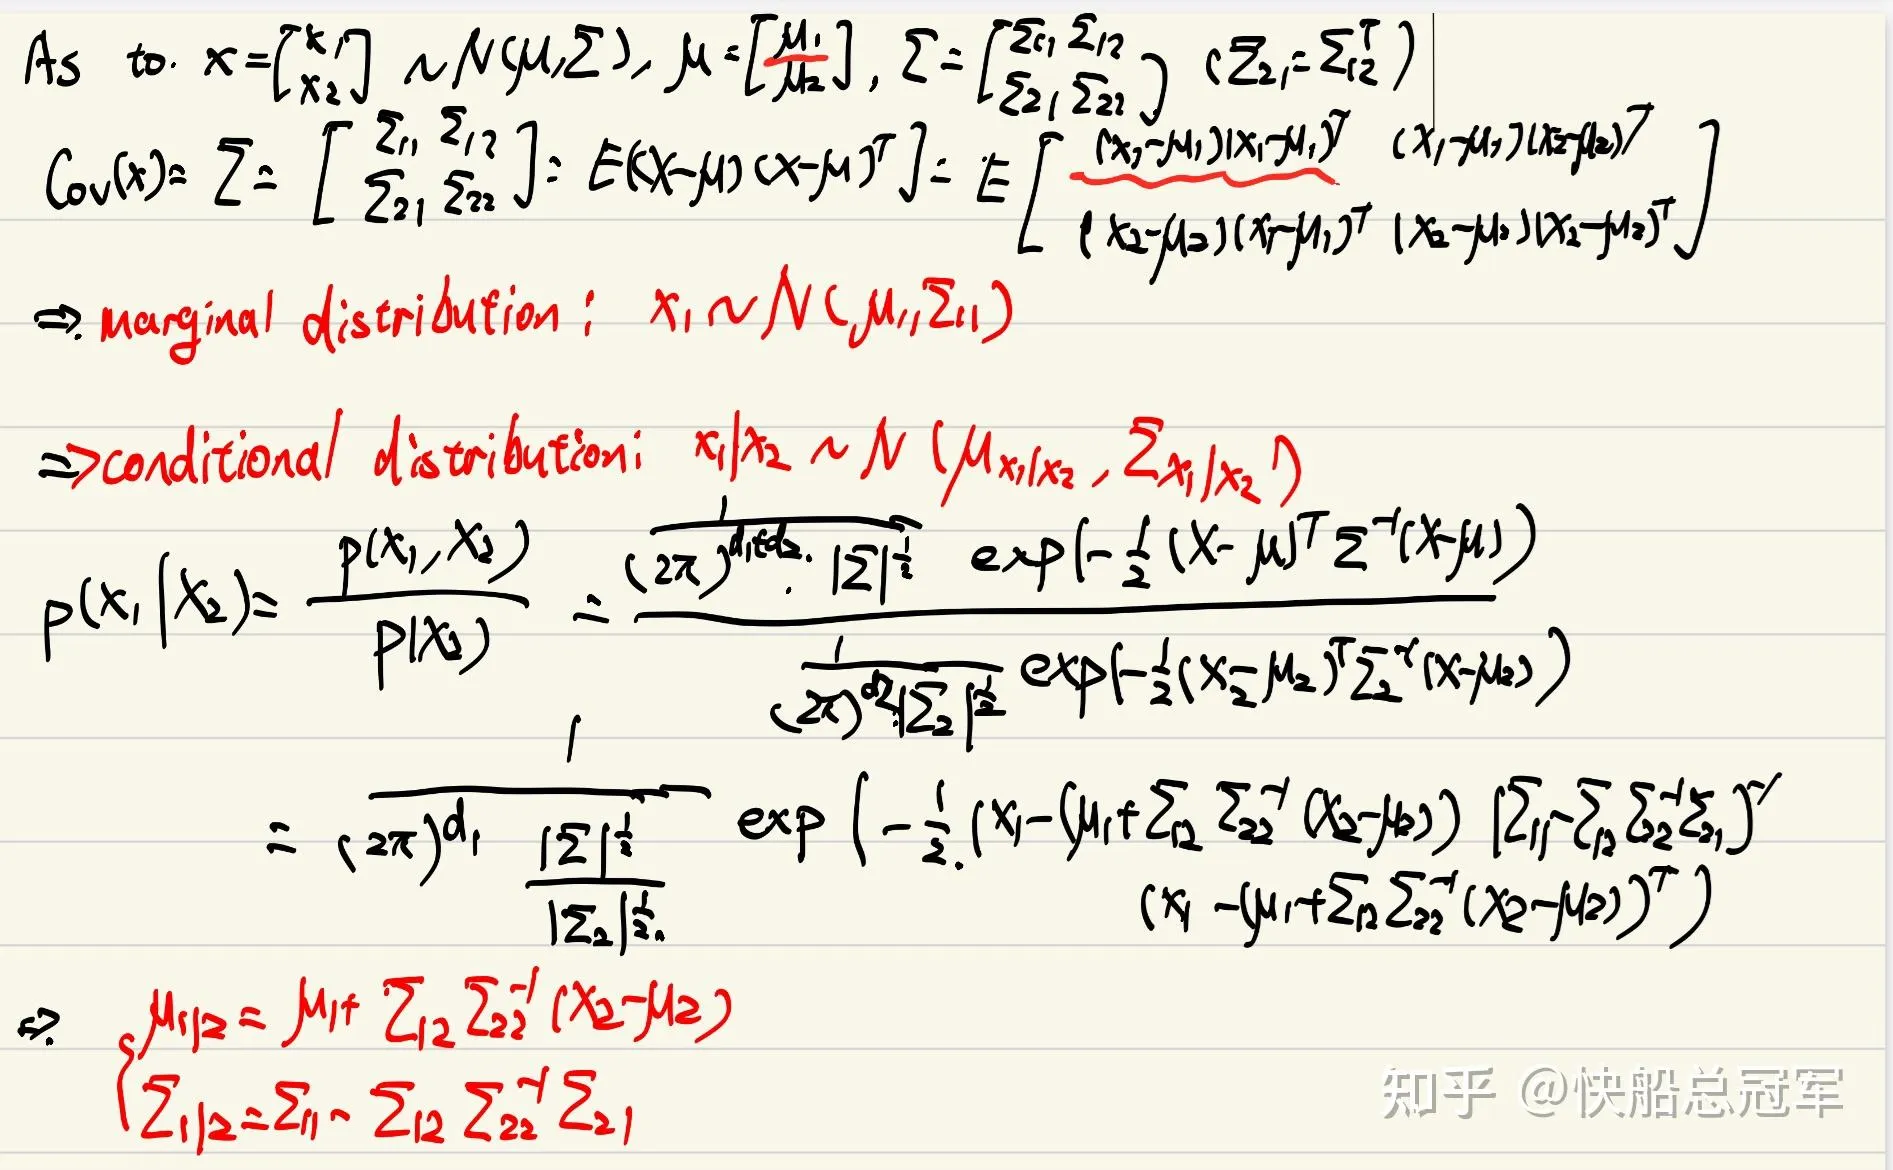 As to. x = [x₁ x₂] ~ N(μ, Σ), μ = [μ₁ μ₂], Σ = [Σ₁₁ Σ₁₂ Σ₂₁ Σ₂₂] (Σ₂₁ = Σ₁₂ᵀ)
Cov(x) = Σ = [Σ₁₁ Σ₁₂ Σ₂₁ Σ₂₂] = E((X-μ)(X-μ)ᵀ] = E[(x₁-μ₁)(x₁-μ₁)ᵀ (x₁-μ₁)(x₂-μ₂)ᵀ (x₂-μ₂)(x₁-μ₁)ᵀ (x₂-μ₂)(x₂-μ₂)ᵀ]
⇒ marginal distribution: x₁ ~ N(μ₁, Σ₁₁)
⇒ conditional distribution: x₁|x₂ ~ N(μ_{x₁|x₂}, Σ_{x₁|x₂})
p(x₁|x₂) = p(x₁, x₂) / p(x₂) = 1/((2π)^{d₁+d₂}·|Σ|^{1/2}) exp(-1/2 (X-μ)ᵀ Σ⁻¹ (X-μ)) / 1/((2π)^{d₂}|Σ₂|^{1/2}) exp(-1/2 (x₂-μ₂)ᵀ Σ₂⁻¹ (x-μ₂))
= 1/((2π)^{d₁} |Σ|^{1/2}/|Σ₂|^{1/2}) exp(-1/2. (x₁-(μ₁+Σ₁₂ Σ₂₂⁻¹ (x₂-μ₂)) [Σ₁₁-Σ₁₂ Σ₂₂⁻¹ Σ₂₁)⁻¹
(x₁-(μ₁+Σ₁₂ Σ₂₂⁻¹ (x₂-μ₂))ᵀ)
⇒ μ₁|₂ = μ₁+ Σ₁₂ Σ₂₂⁻¹ (x₂-μ₂)
Σ₁|₂ = Σ₁₁ - Σ₁₂ Σ₂₂⁻¹ Σ₂₁
知乎 @快船总冠军